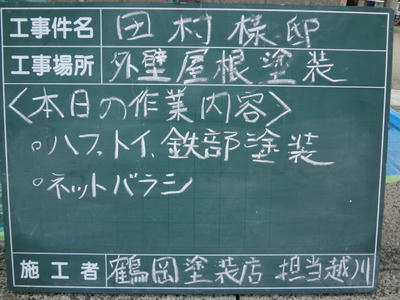 工事件名 田村様邸
工事場所 外壁屋根塗装
〈本日の作業内容〉
◦ハフ、トイ、鉄部塗装
◦ネットバラシ
施工者 鶴岡塗装店 担当越川